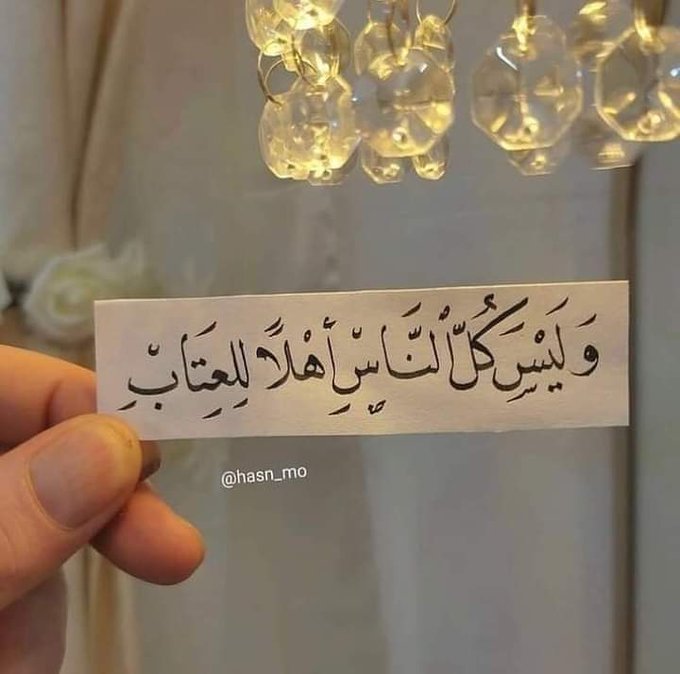 وَلَيْسَ كُلُّ النَّاسِ أَهْلًا لِلعِتَابِ
@hasn_mo